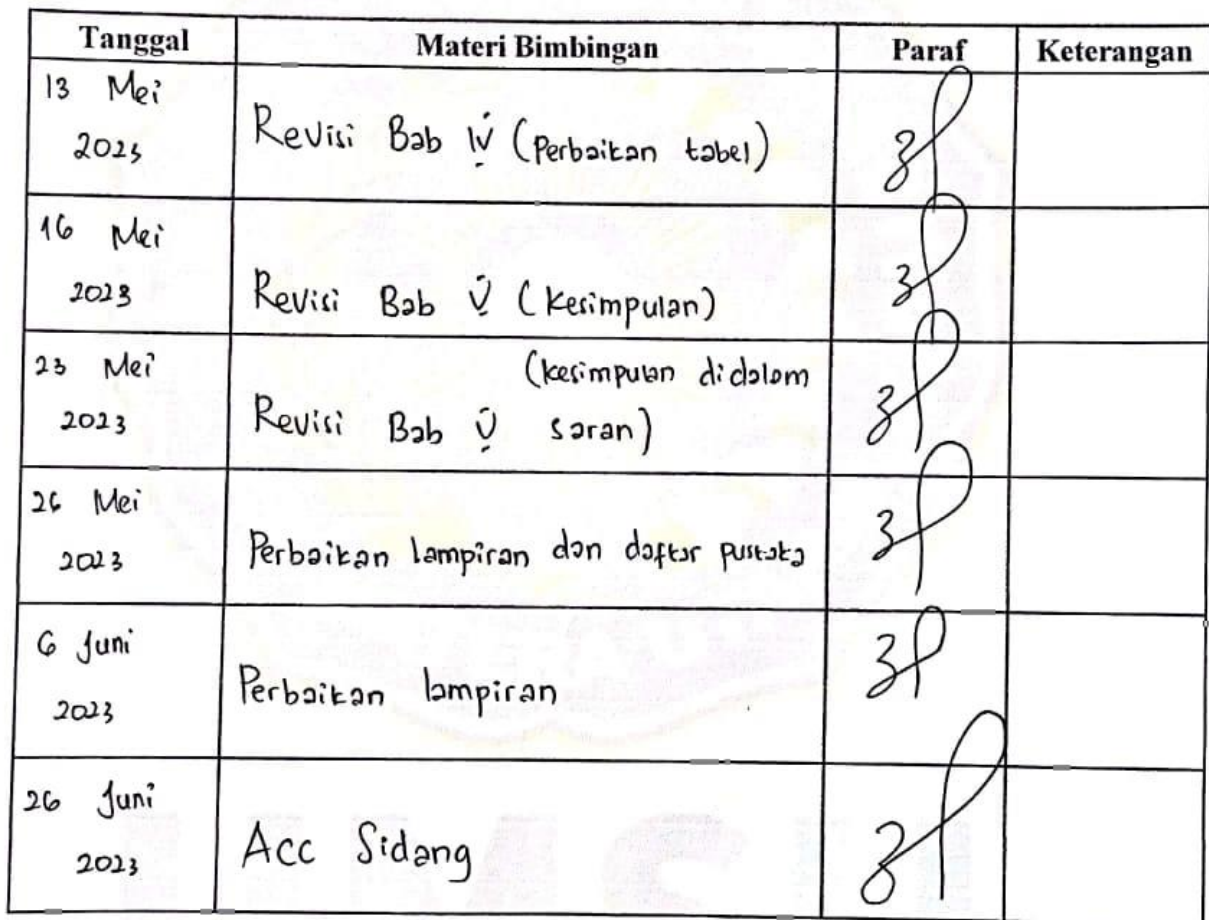 Tanggal Materi Bimbingan Paraf Keterangan
13 Mei
2023
Revisi Bab IV (Perbaikan tabel)
16 Mei
2023
Revisi Bab V (Kesimpulan)
23 Mei
2023
(kesimpulan didalam
Revisi Bab V saran)
26 Mei
2023
Perbaikan lampiran dan daftar pustaka
6 Juni
2023
Perbaikan lampiran
26 Juni
2023
Acc Sidang